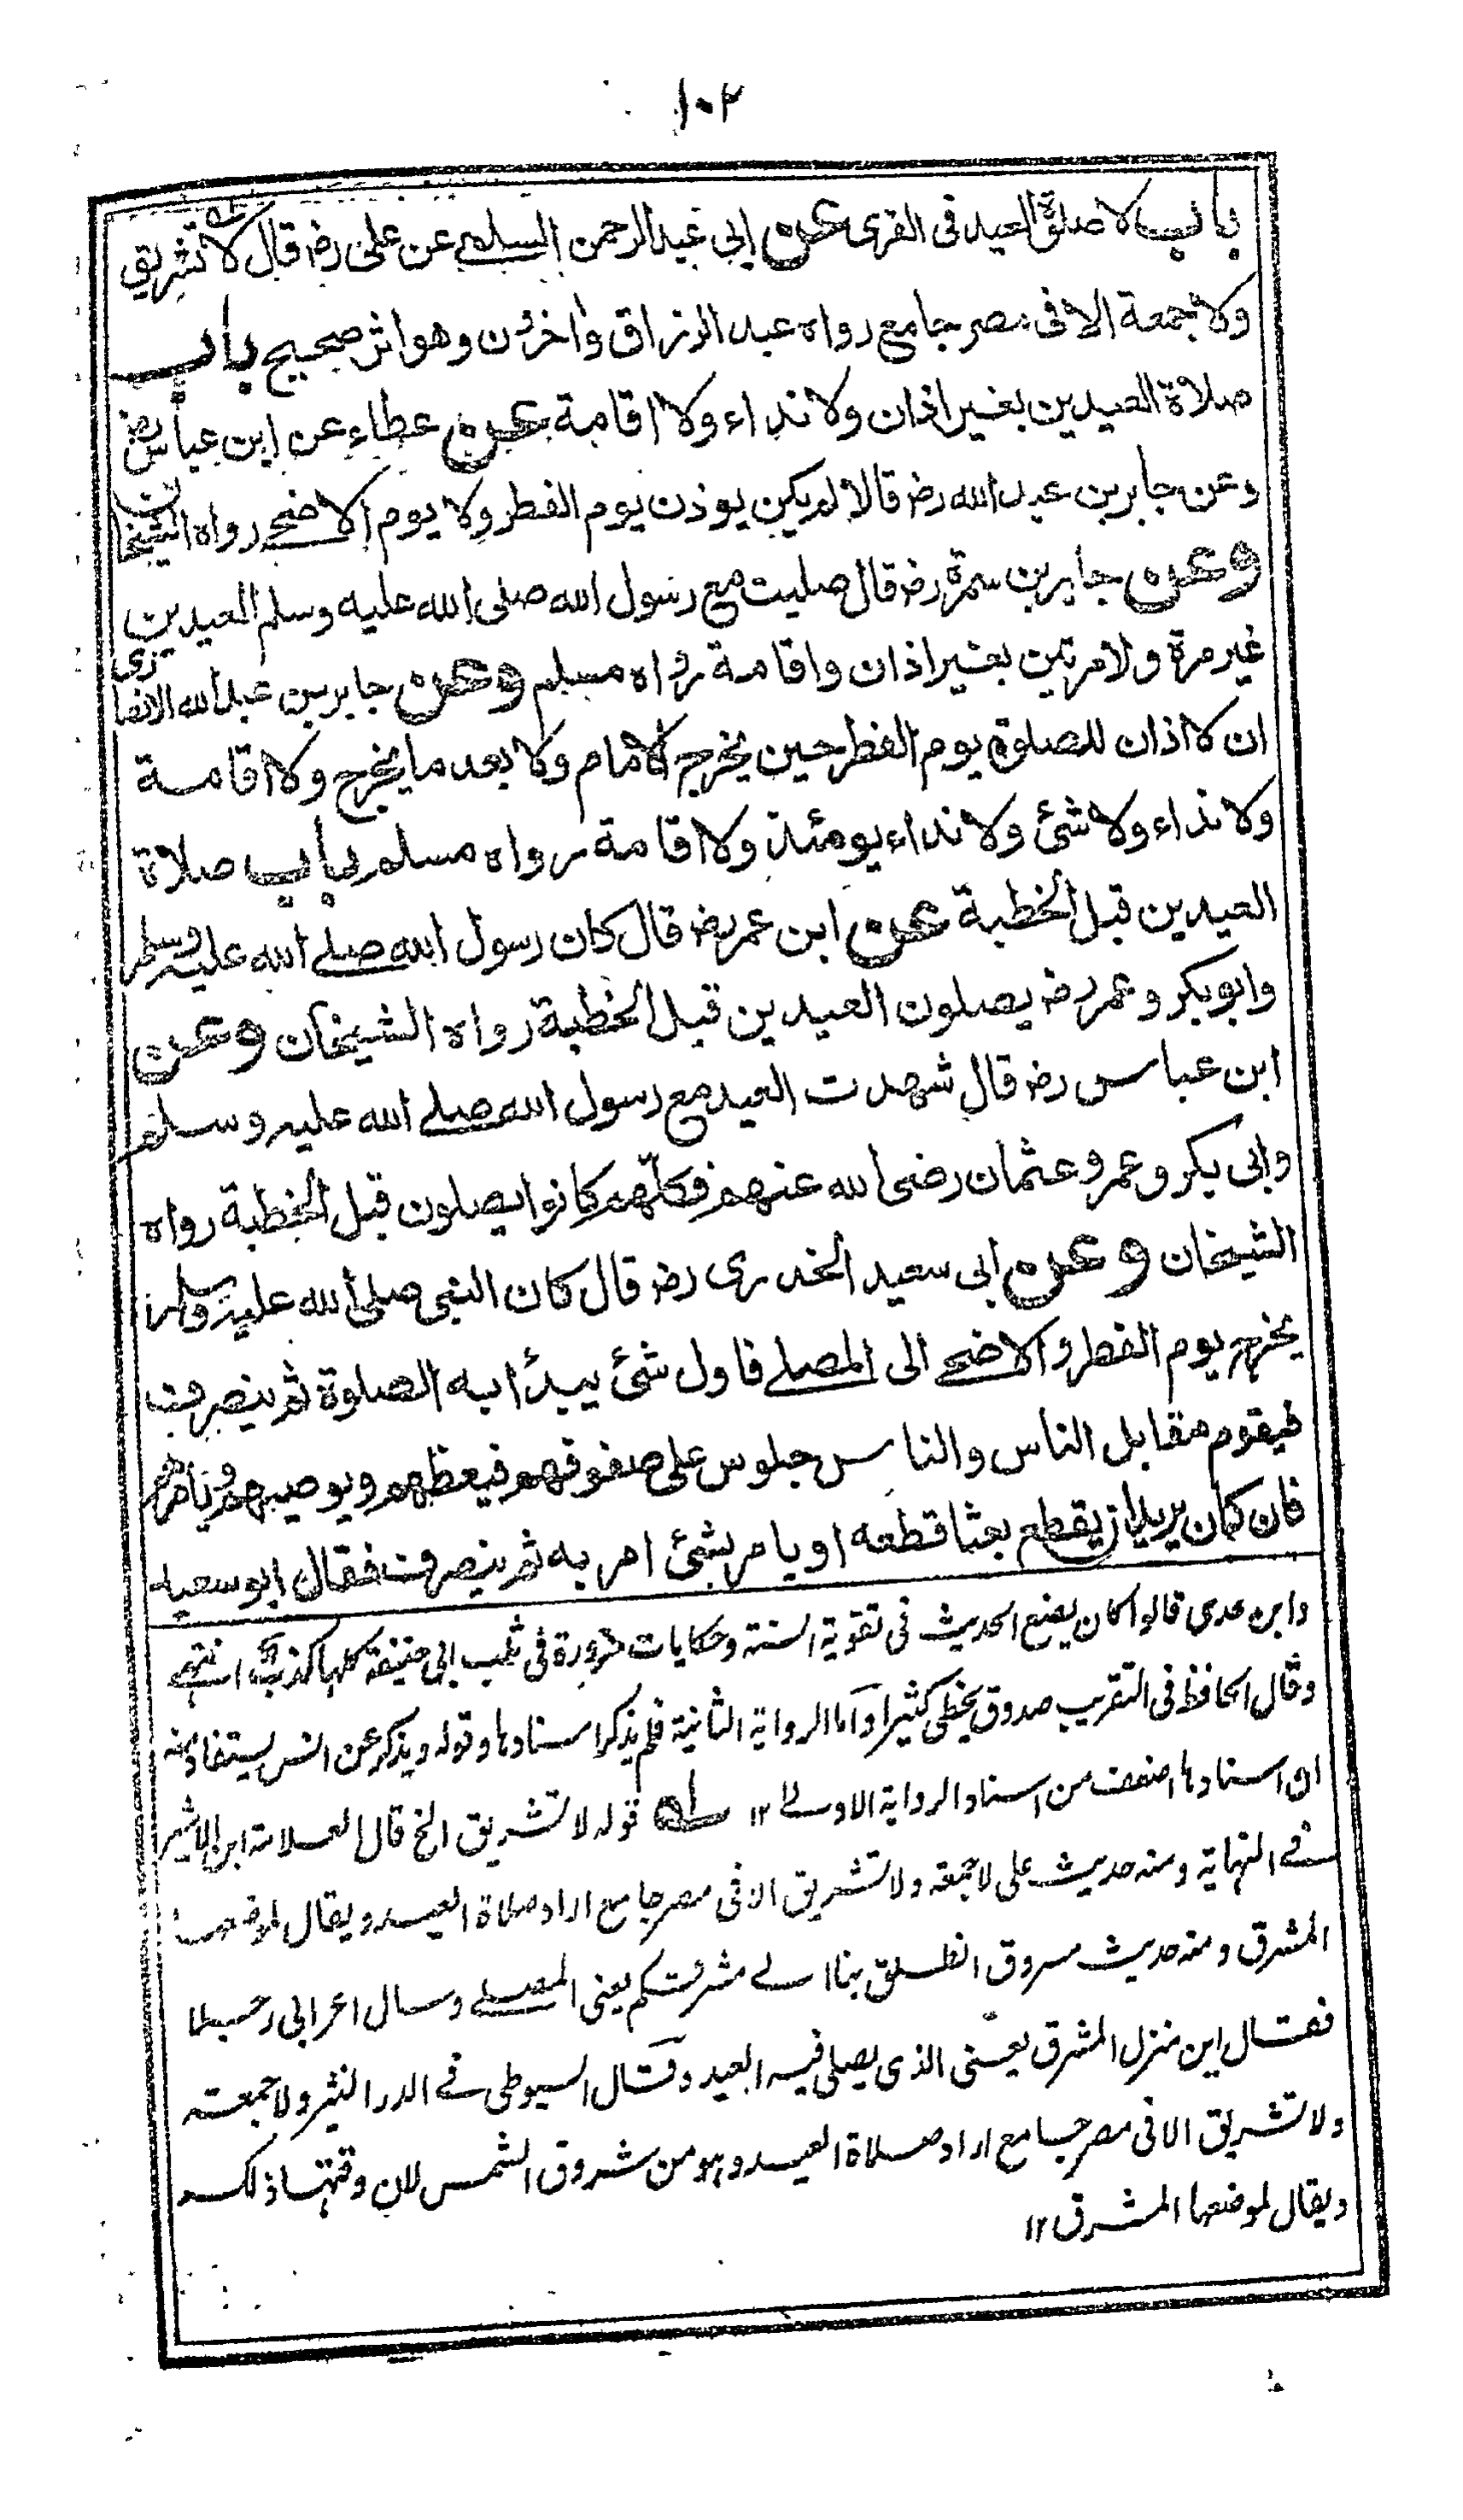 ١٠٢
باب لا صلوة العيد فى القرى عن ابى عبد الرحمن السلمے عن على رض قال لا تشريق
ولا جمعة الا فى مصر جامع رواه عبد الرزاق واخرون وهو اثر صحيح باب
صلاة العيدين بغير اذان ولا نداء ولا اقامة عن عطاء عن ابن عباس رض
وعن جابر بن عبد الله رض قالا لم يكن يوذن يوم الفطر ولا يوم الاضحے رواه الشيخان
وعن جابر بن سمرة رض قال صليت مع رسول الله صلى الله عليه وسلم العيدين
غير مرة ولا مرتين بغير اذان واقامة رواه مسلم وعن جابر بن عبد الله الانصارى
ان لا اذان للصلوة يوم الفطر حين يخرج الامام ولا بعد ما يخرج ولا اقامة
ولا نداء ولا شئ ولا نداء يومئذ ولا اقامة رواه مسلم باب صلاة
العيدين قبل الخطبة عن ابن عمر رض قال كان رسول الله صلے الله عليه وسلم
وابو بكر وعمر رض يصلون العيدين قبل الخطبة رواه الشيخان وعن
ابن عباس رض قال شهدت العيد مع رسول الله صلے الله عليه وسلم
وابى بكر وعمر وعثمان رضى الله عنهم فكلّهم كانوا يصلون قبل الخطبة رواه
الشيخان وعن ابى سعيد الخدرى رض قال كان النبى صلى الله عليه وسلم
يخرج يوم الفطر والاضحے الى المصلے فاول شئ يبدأ به الصلوة ثم ينصرف
فيقوم مقابل الناس والناس جلوس على صفوفهم فيعظهم ويوصيهم ويأمرهم
فان كان يريد ان يقطع بعثا قطعه او يامر بشئ امر به ثم ينصرف فقال ابو سعيد
وابن عدى قالوا كان يضع الحديث فى تقوية السنة وحكايات مزورة فى ثلب ابى حنيفة كلها كذب انتهے
وقال الحافظ فى التقريب صدوق يخطى كثيرا واما الرواية الثانية فلم يذكر اسنادها وقوله ويذكر عن انس يستفاد منه
ان اسنادها اضعف من اسناد الرواية الاولے ١٢ قوله لا تشريق الخ قال العلامة ابن الاثير
فے النهاية ومنه حديث على لا جمعة ولا تشريق الا فى مصر جامع اراد صلاة العيد ويقال لموضعها
المشرق ومنه حديث مسروق انطلق بنا الے مشرقكم يعنى المصلے وسال اعرابى رجلا
فقال اين منزل المشرق يعنى الذى يصلى فيه العيد وقال السيوطى فے الدر النثير ولا جمعة
ولا تشريق الا فى مصر جامع اراد صلاة العيد وهو من شروق الشمس لان وقتها ذلك
ويقال لموضعها المشرق ١٢